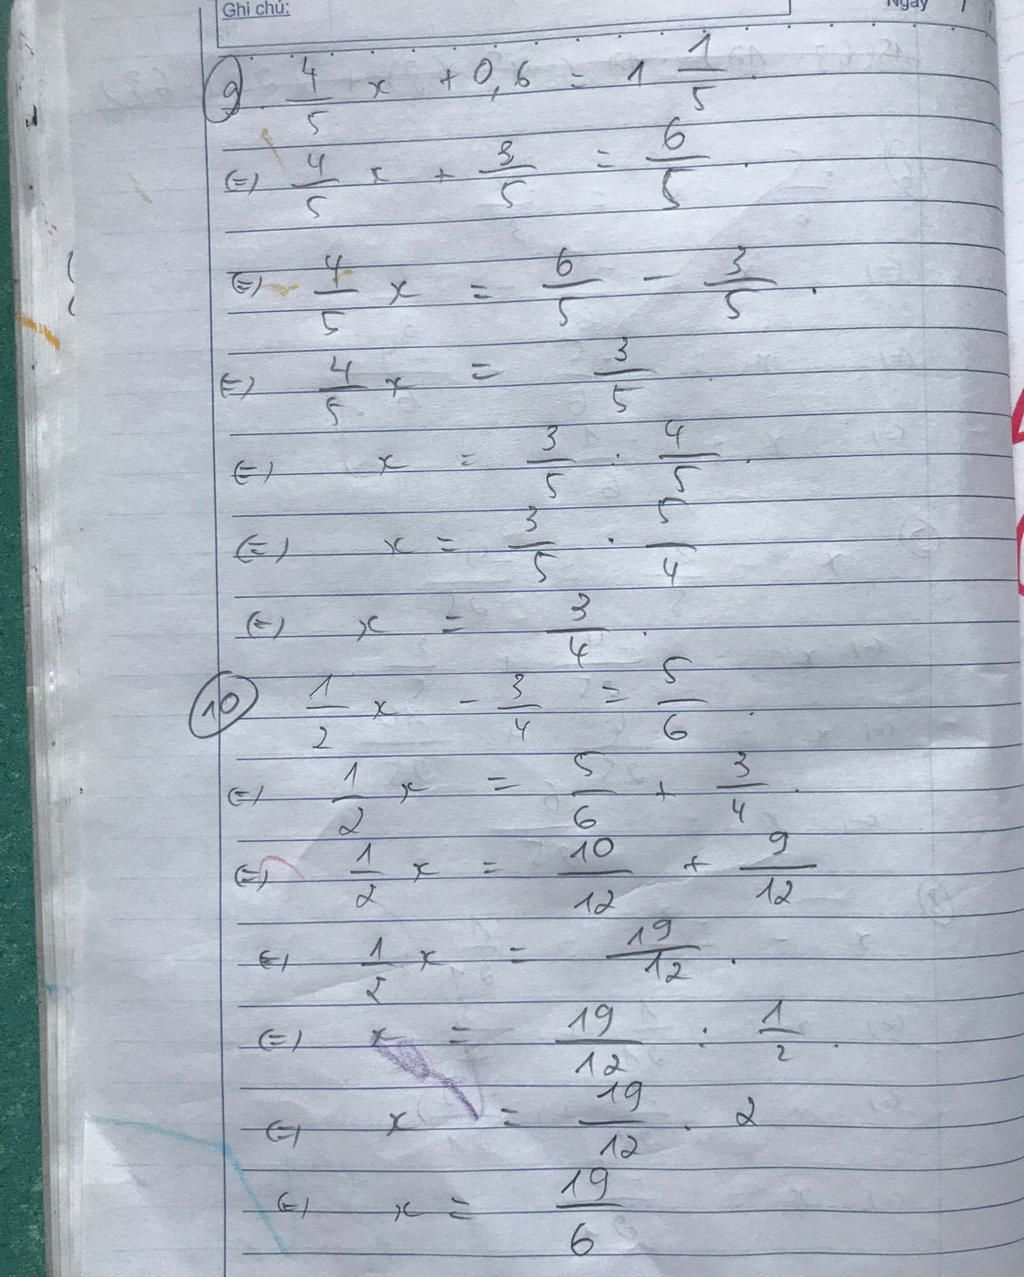 Ghi chú:
Ngày
9. 4/5 x + 0,6 = 1 1/5.
(=) 4/5 x + 3/5 = 6/5.
(=) 4/5 x = 6/5 - 3/5.
(=) 4/5 x = 3/5
(=) x = 3/5 : 4/5.
(=) x = 3/5 . 5/4
(=) x = 3/4.
10 1/2 x - 3/4 = 5/6.
(=) 1/2 x = 5/6 + 3/4.
(=) 1/2 x = 10/12 + 9/12
(=) 1/2 x = 19/12.
(=) x = 19/12 : 1/2.
(=) x = 19/12 . 2
(=) x = 19/6